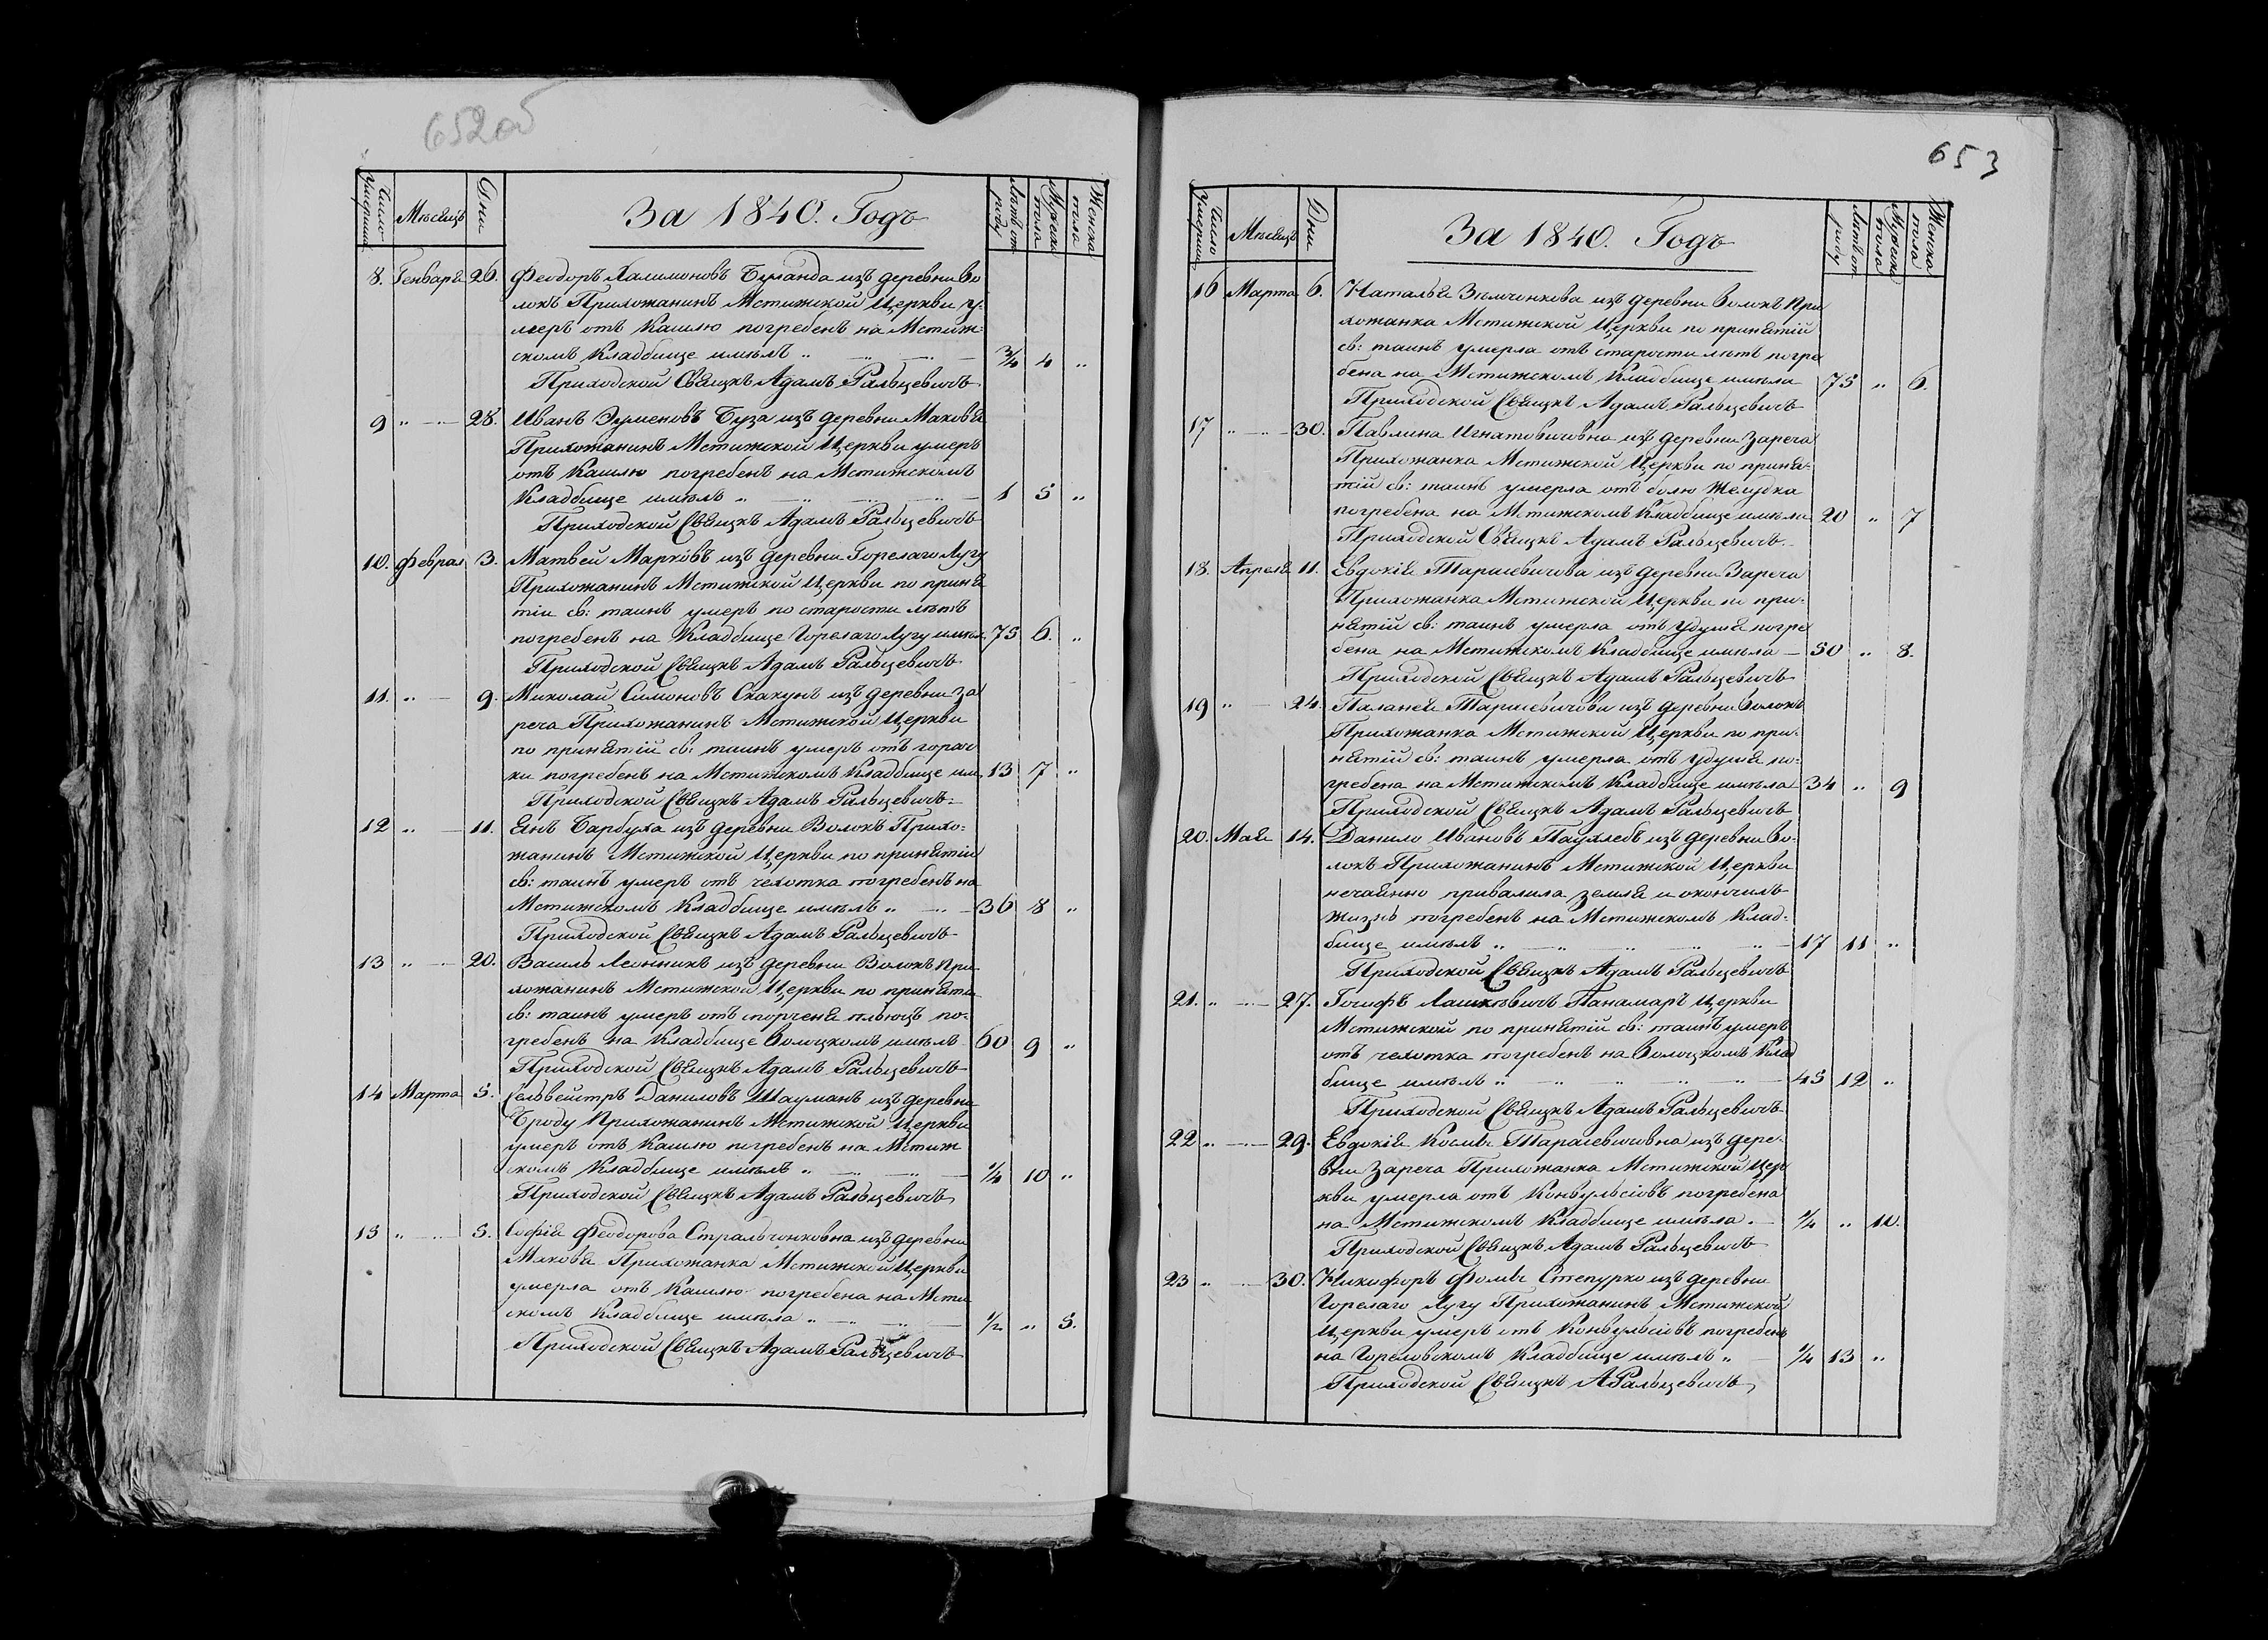 652об
Число умершихъ Мѣсяцъ Дни За 1840. Годъ Лѣтъ отъ роду Мужска пола Женска пола
8. Генваря 26. Феодоръ Халимоновъ Буланда изъ деревни Во
локъ Прихожанинъ Мстижской Церкви у-
меръ отъ Кашлю погребенъ на Мстиж-
скомъ Кладбище имѣлъ „ 3/4 4 „
Приходской Свящнкъ Адамъ Ральцевичъ
9 „ 28. Иванъ Эуменовъ Буза изъ деревни Маковя
Прихожанинъ Мстижской Церкви умеръ
отъ Кашлю погребенъ на Мстижскомъ
Кладбище имѣлъ „ 1 5 „
Приходской Свящнкъ Адамъ Ральцевичъ
10. Феврал 3. Матвей Марковъ изъ деревни Горелаго Лугу
Прихожанинъ Мстижской Церкви по приня
тіи св: таинъ умеръ по старости лѣтъ
погребенъ на Кладбище Горелаго Лугу имѣл. 75 6. „
Приходской Свящнкъ Адамъ Ральцевичъ
11. „ 9. Миколай Симоновъ Скакунъ изъ деревни За
реча Прихожанинъ Мстижской Церкви
по принятій св: таинъ умеръ отъ горяч
ки погребенъ на Мстижскомъ Кладбище им. 13 7 „
Приходской Свящнкъ Адамъ Ральцевичъ
12 „ 11. Янъ Барбуха изъ деревни Волокъ Прихо-
жанинъ Мстижской Церкви по принятіи
св: таинъ умеръ отъ чехотка погребенъ на
Мстижскомъ Кладбище имѣлъ „ 36 8 „
Приходской Свящнкъ Адамъ Ральцевичъ
13 „ 20. Василь Леонникъ изъ деревни Волокъ При
хожанинъ Мстижской Церкви по приняти
св: таинъ умеръ отъ порченя плюцъ по-
гребенъ на Кладбище Волоцкомъ имѣлъ 60 9 „
Приходской Свящнкъ Адамъ Ральцевичъ
14 Марта 5. Сельвейтръ Даниловъ Шауманъ изъ деревни
Броду Прихожанинъ Мстижской Церкви
умеръ отъ Кашлю погребенъ на Мстиж
скомъ Кладбище имѣлъ „ 1/4 10 „
Приходской Свящнкъ Адамъ Ральцевичъ
15 „ 5. Софія Феодорова Стральчонковна изъ деревни
Маковя Прихожанка Мстижской Церкви
умерла отъ Кашлю погребена на Мсти
скомъ Кладбище имѣла „ 1/2 „ 5.
Приходской Свящнкъ Адамъ Ральцевичъ
653
Число умершихъ Мѣсяцъ Дни За 1840. Годъ Лѣтъ от роду Мужска пола Женска пола
16 Марта 6. Наталья Зѣмченкова изъ деревни Волокъ При
хожанка Мстижской Церкви по принятій
св: таинъ умерла отъ старости лѣтъ погре
бена на Мстижскомъ Кладбище имѣла 75 „ 6.
Приходской Свящнкъ Адамъ Ральцевичъ
17 „ 30. Павлина Игнатовичовна изъ деревни Зареча
Прихожанка Мстижской Церкви по приня-
тій св: таинъ умерла отъ болю Желудка
погребена на Мстижскомъ Кладбище имѣла 20 „ 7
Приходской Свящнкъ Адамъ Ральцевичъ
18. Апреля 11. Евдокія Тарасевичова изъ деревни Зареча
Прихожанка Мстижской Церкви по при-
нятій св: таинъ умерла отъ Удушя погре
бена на Мстижскомъ Кладбище имѣла 50 „ 8.
Приходской Свящнкъ Адамъ Ральцевичъ
19 „ 24. Паланея Тарасевичова изъ деревни Волокъ
Прихожанка Мстижской Церкви по при-
нятій св: таинъ умерла отъ Удушя по-
гребена на Мстижскомъ Кладбище имѣла 34 „ 9
Приходской Свящнкъ Адамъ Ральцевичъ
20. Мая 14. Данило Ивановъ Паухлебъ изъ деревни Во-
локъ Прихожанинъ Мстижской Церкви
нечаянно привалила земля и окончилъ
жизнь погребенъ на Мстижскомъ Клад-
бище имѣлъ „ 17 11 „
Приходской Свящнкъ Адамъ Ральцевичъ
21. „ 27. Іосифъ Лашкевичъ Панамаръ Церкви
Мстижской по принятій св: таинъ умеръ
отъ чехотка погребенъ на Волоцкомъ Клад
бище имѣлъ „ 45 12 „
Приходской Свящнкъ Адамъ Ральцевичъ
22 „ 29. Евдокія Косьмъ Тарасевичовна изъ дере-
вни Зареча Прихожанка Мстижской Цер
кви умерла отъ Конвульсіовъ погребена
на Мстижскомъ Кладбище имѣла 1/4 „ 10.
Приходской Свящнкъ Адамъ Ральцевичъ
23 „ 30. Никифоръ Фомъ Степурко изъ деревни
Горелаго Лугу Прихожанинъ Мстижской
Церкви умеръ отъ Конвульсіовъ погребенъ
на Гореловскомъ Кладбище имѣлъ „ 1/4 13 „
Приходской Свящнкъ А Ральцевичъ